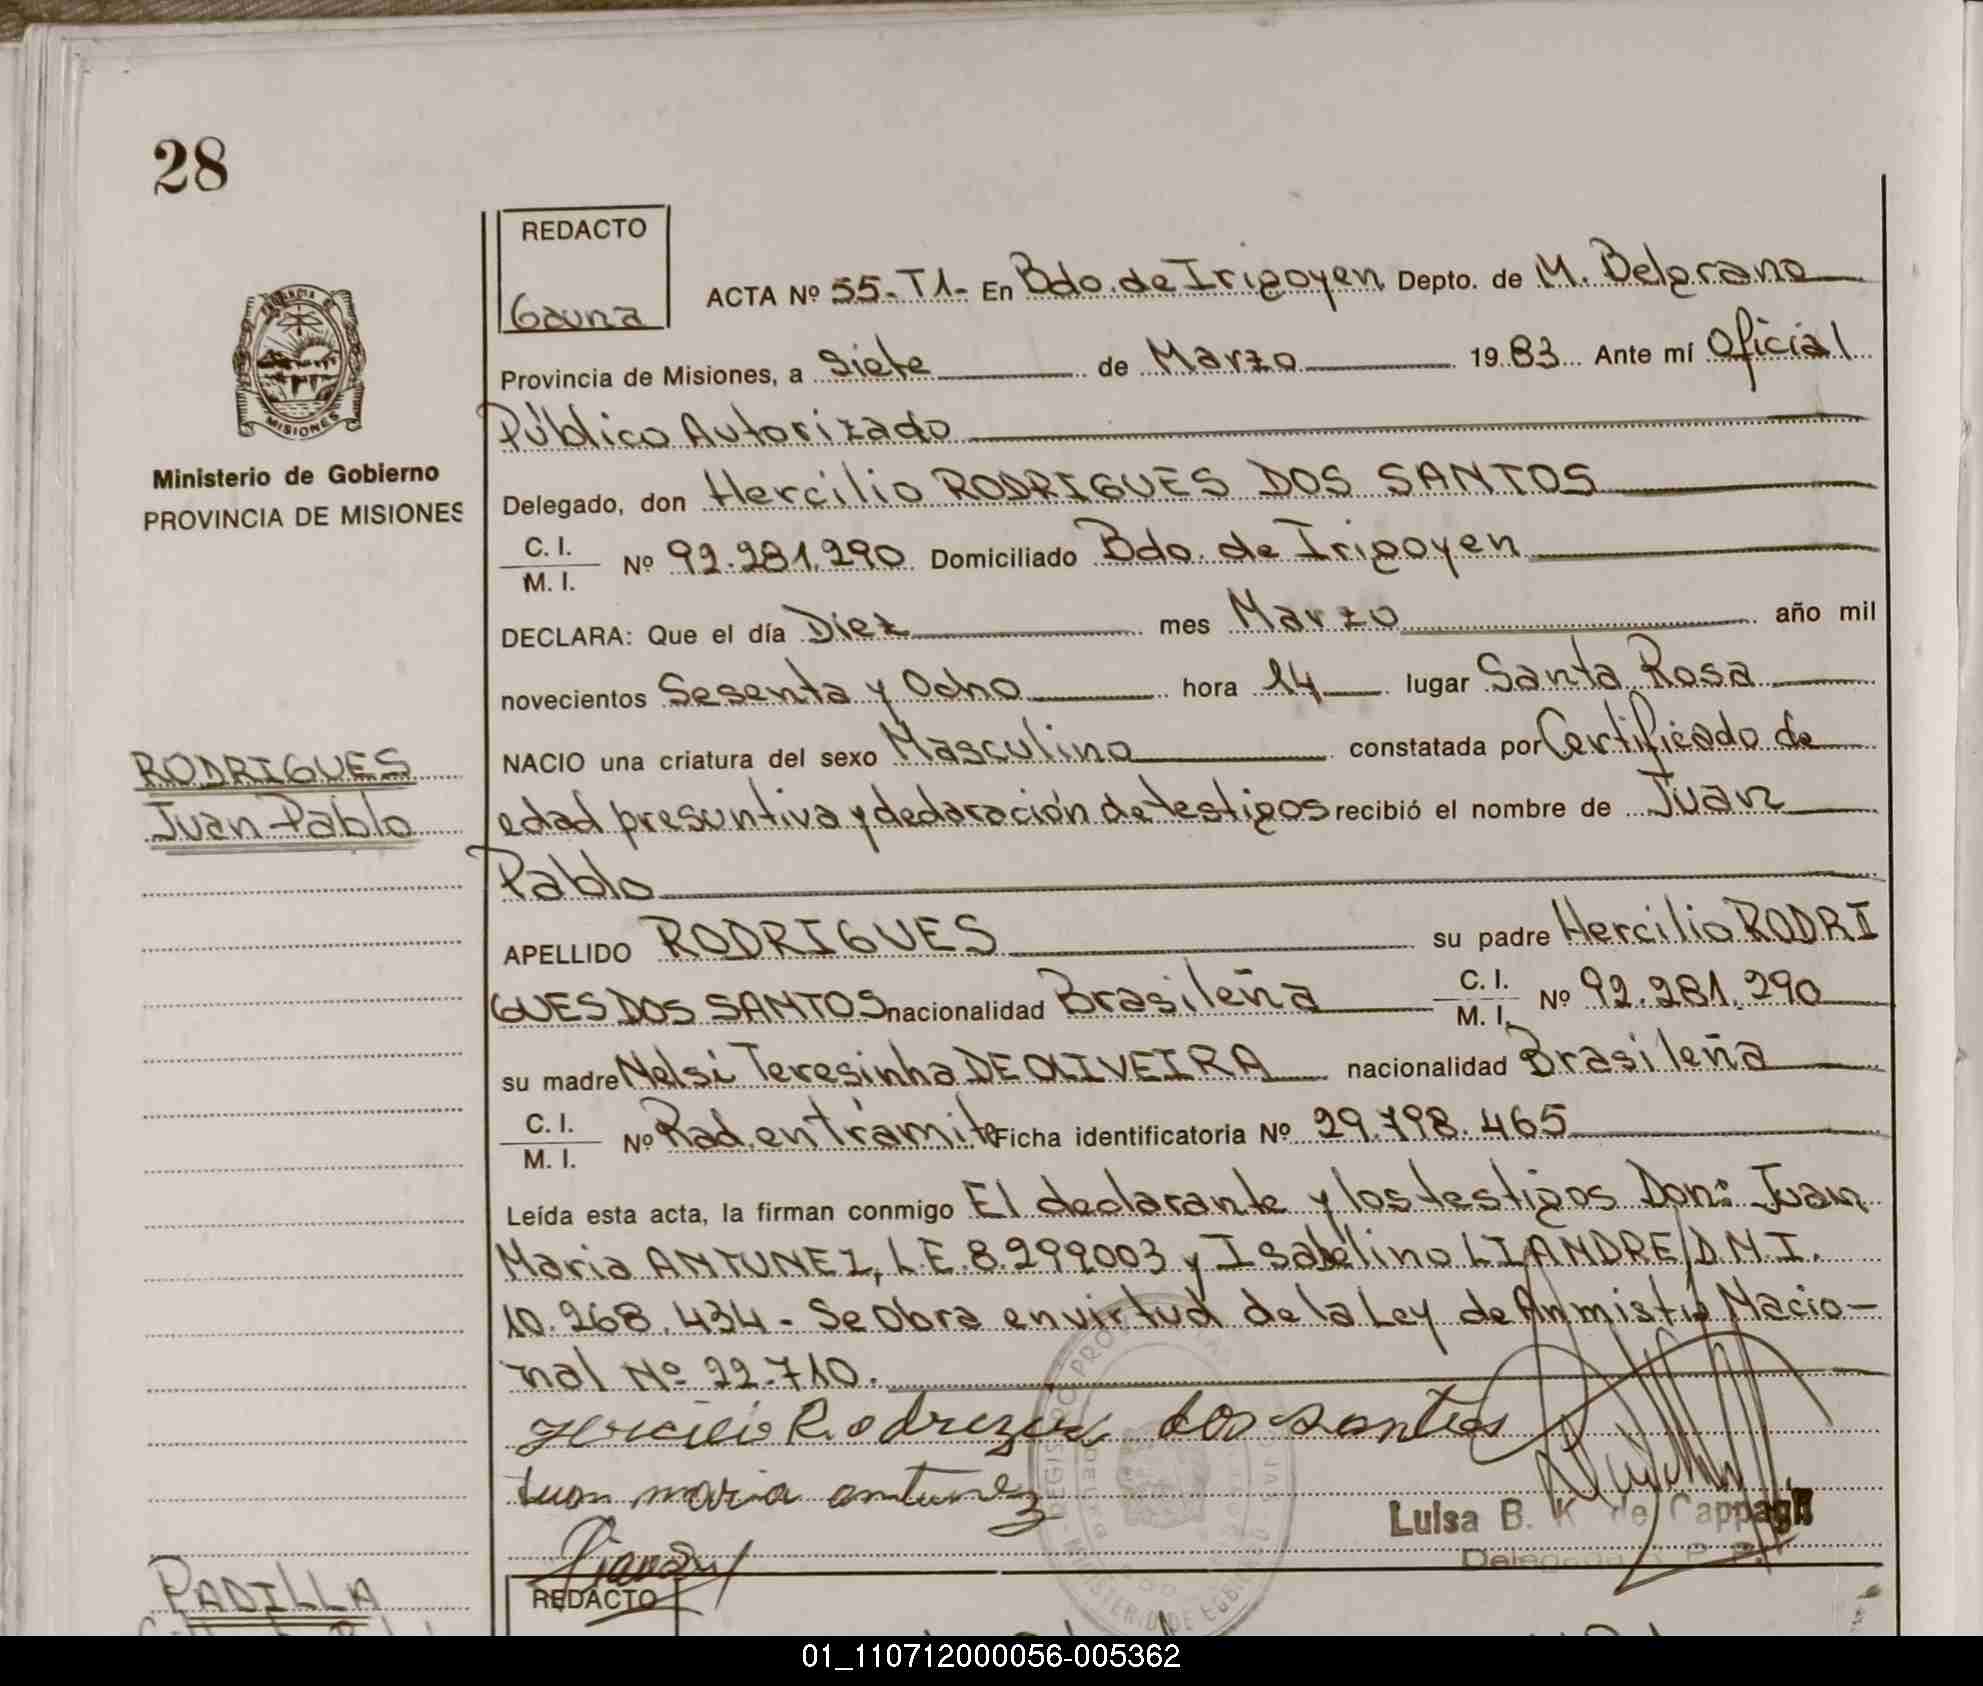 28
REDACTO
Gauna
ACTA Nº 55-T1- En Bdo. de Irigoyen Depto. de M. Belgrano
Provincia de Misiones, a Siete de Marzo 1983 Ante mí Oficial
Público Autorizado
Delegado, don Hercilio RODRIGUES DOS SANTOS
C. I.
M. I. Nº 92.281.290 Domiciliado Bdo. de Irigoyen
DECLARA: Que el día Diez mes Marzo año mil
novecientos Sesenta y Ocho hora 14 lugar Santa Rosa
NACIO una criatura del sexo Masculino constatada por Certificado de
edad presuntiva y declaración de testigos recibió el nombre de Juan
Pablo
APELLIDO RODRIGUES su padre Hercilio RODRI
GUES DOS SANTOS nacionalidad Brasileña C. I. M. I. Nº 92.281.290
su madre Nelsi Teresinha DE OLIVEIRA nacionalidad Brasileña
C. I.
M. I. Nº Rad. en trámite Ficha identificatoria Nº 29.798.465
Leída esta acta, la firman conmigo El declarante y los testigos Don: Juan
Maria ANTUNEZ, L.E. 8.299003 y Isabelino LIANDRE D.N.I.
10.268.434 - Se Obra en virtud de la Ley de Anmistia Nacio-
nal Nº 22.710.
Hercilio Rodrigues dos santos
Juan maria antunez
Luisa B. K. de Cappagli
Delegada
REDACTO
MISIONES
Ministerio de Gobierno
PROVINCIA DE MISIONES
RODRIGUES
Juan Pablo
PADILLA
01_110712000056-005362